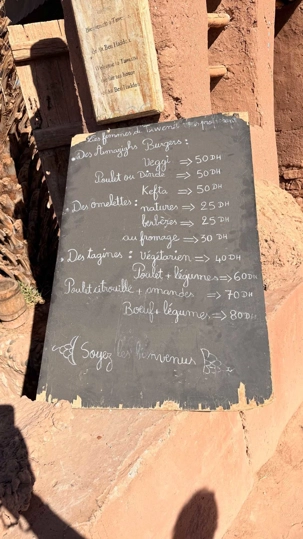 Les femmes de
Des Amazighs Burgers :
Veggi ⇒ 50 DH
Poulet ou Dinde ⇒ 50 DH
Kefta ⇒ 50 DH
Des omelettes : natures ⇒ 25 DH
berbères ⇒ 25 DH
au fromage ⇒ 30 DH
Des tagines : Végétarien ⇒ 40 DH
Poulet + légumes ⇒ 60 DH
Poulet citrouille + amandes ⇒ 70 DH
Boeuf + légumes ⇒ 80 DH
Soyez les bienvenus